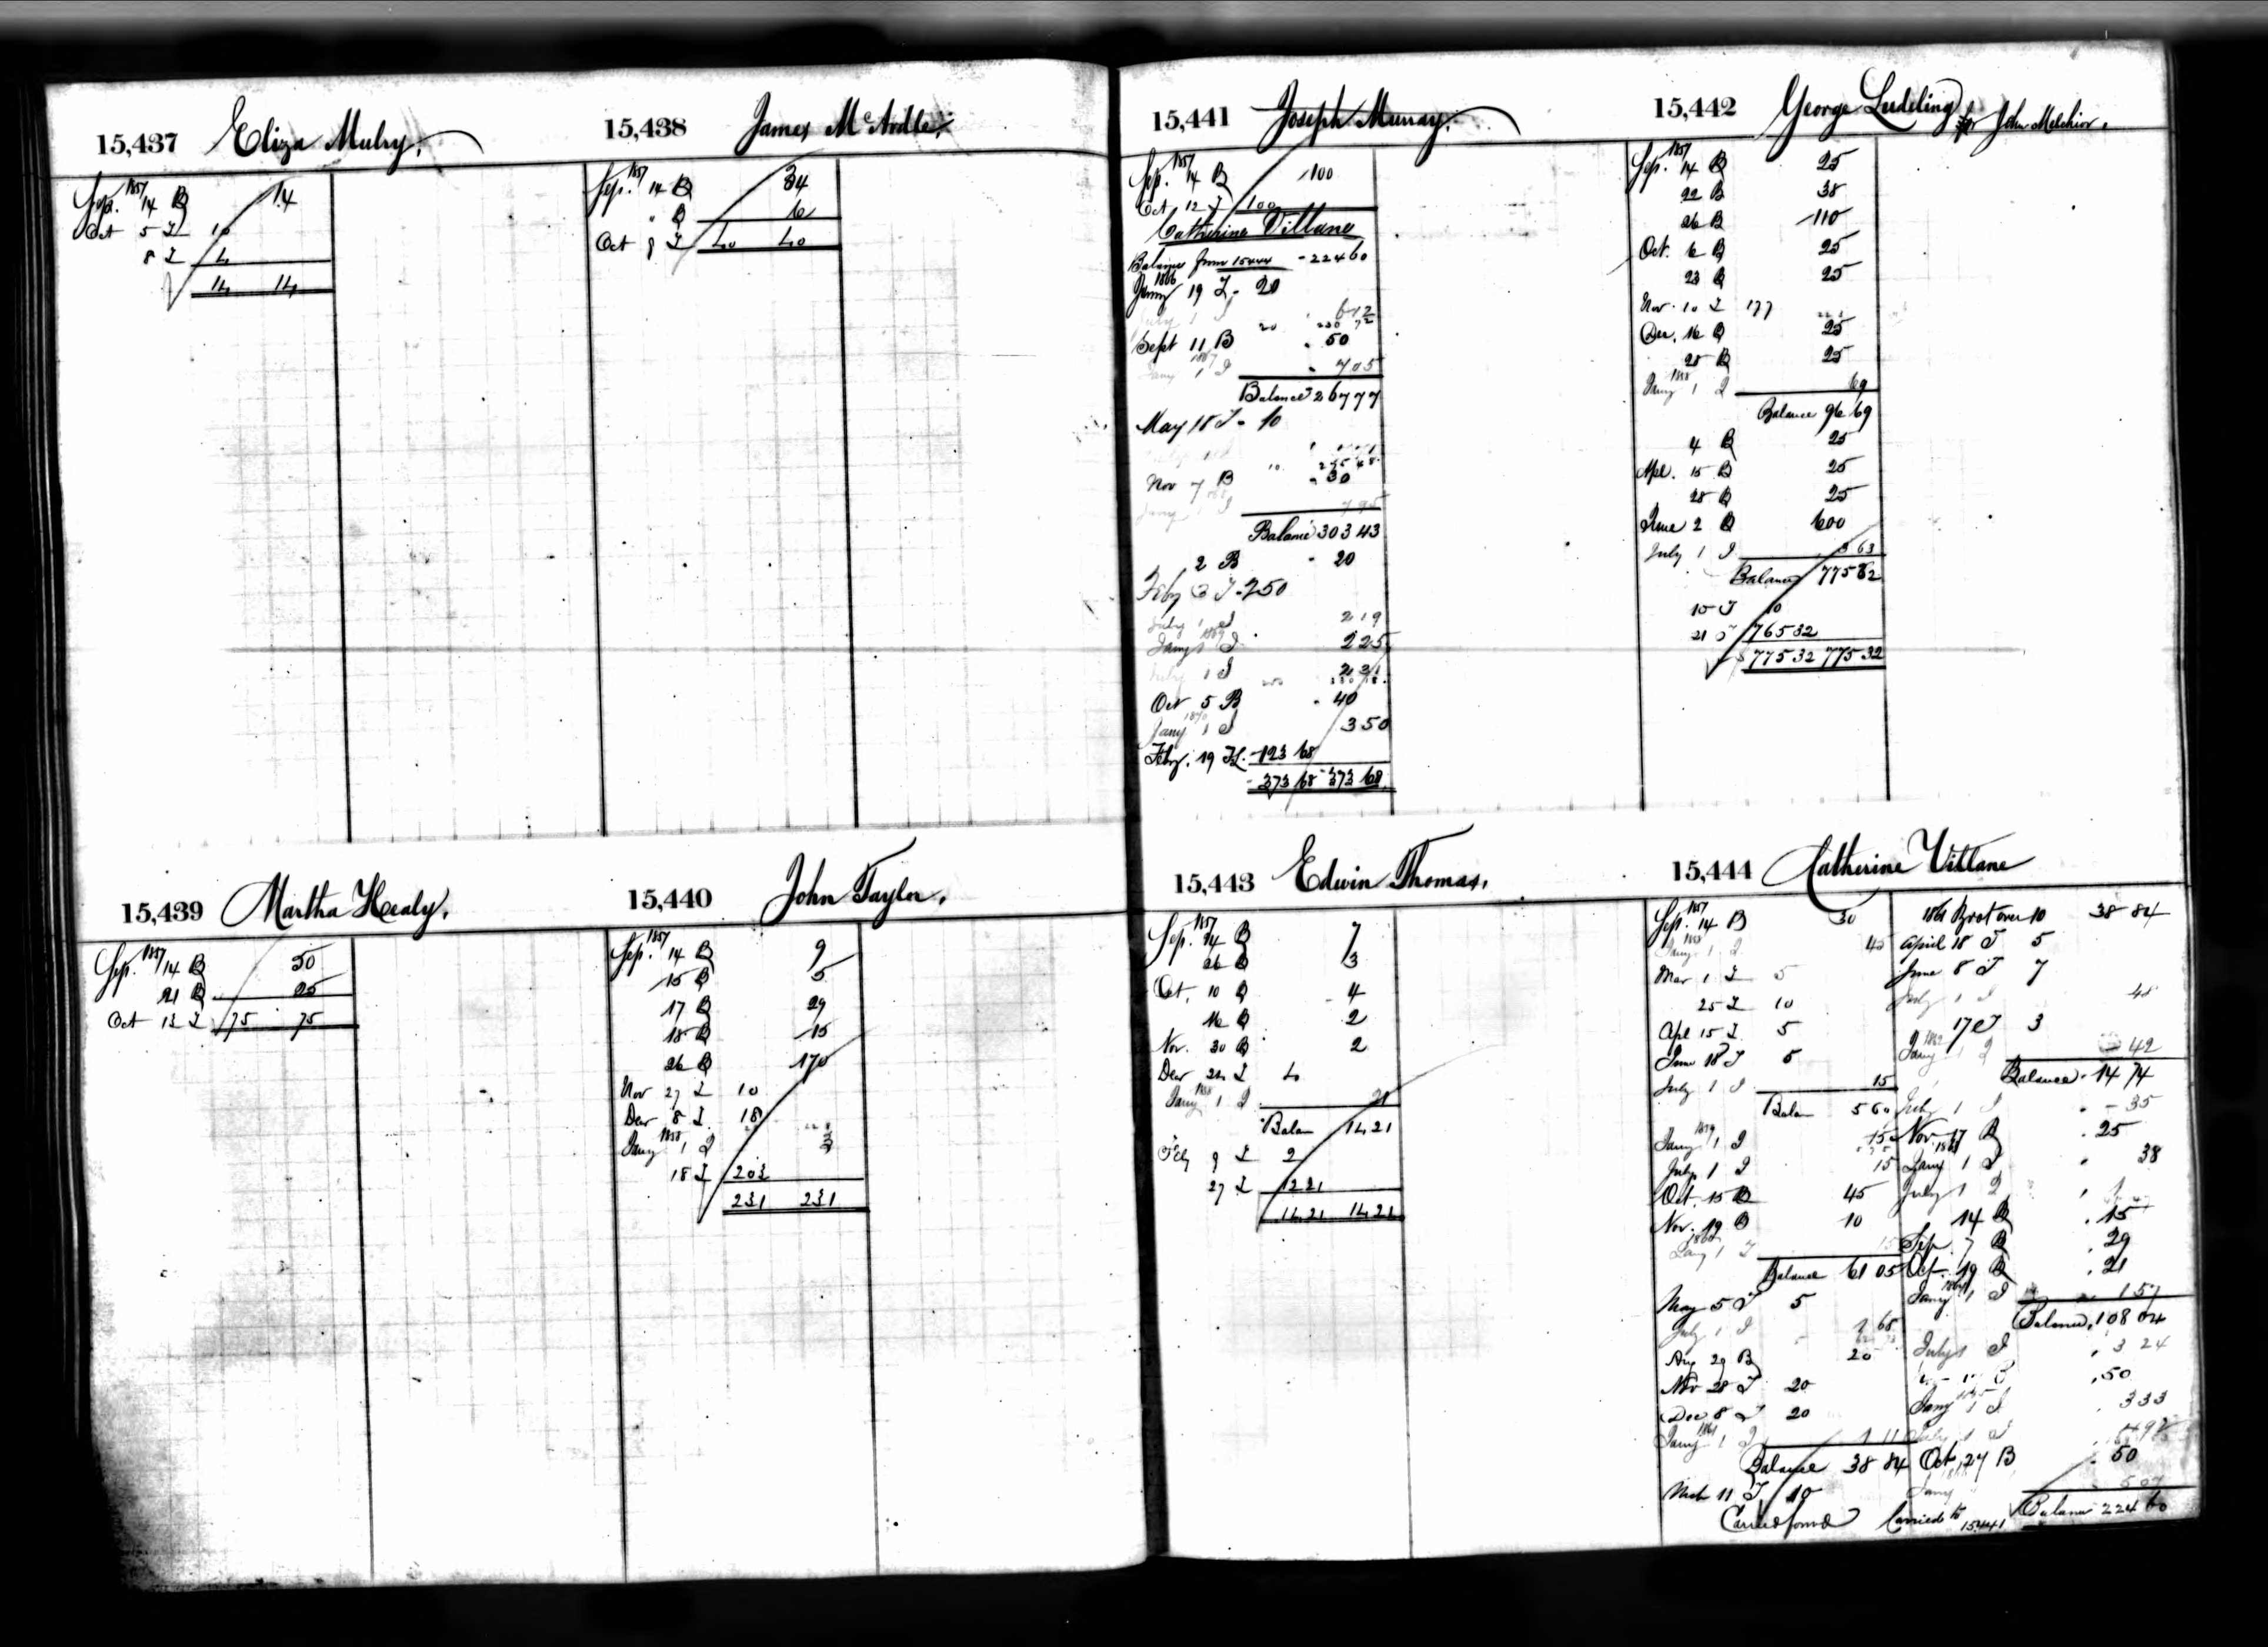 15,437 Eliza Mulry.
Sep. 1857 14 B 14
Oct 5 I 10
8 I 4
14 14
15,438 James McArdle.
Sep. 1857 14 B 34
" B 6
Oct 8 I 40 40
15,439 Martha Healy.
Sep. 1857 14 B 50
21 B 25
Oct 13 I 75 75
15,440 John Taylor.
Sep. 1857 14 B 9
15 B 5
17 B 29
18 B 15
26 B 170
Nov 27 I 10
Dec 8 I 18
Jany 1858 1 I 3
18 I 203
231 231
15,441 Joseph Murray.
Sep. 1857 14 B 100
Oct 12 I 100
Catherine Villane
Balance from 15444 224 60
Jany 1866 19 I 20
July 1 I 6 12
20 230 72
Sept 11 B 50
Jany 1867 1 I 7 05
Balance 267 77
May 18 I 10
Nov 7 B 30
Jany 1868 1 I 7 95
Balance 303 43
2 B 20
Feby 3 I 250
July 1 I 2 19
Jany 1869 1 I 2 25
July 1 I 2 31
Oct 5 B 40
Jany 1870 1 I 3 50
Feby. 19 I 123 68
373 68 373 68
15,442 George Ludeling for John Melchior.
Sep. 1857 14 B 25
22 B 38
26 B 110
Oct. 6 B 25
23 B 25
Nov. 10 I 177
Dec. 16 B 25
28 B 25
Jany 1858 1 I 69
Balance 96 69
4 B 25
Apl. 15 B 25
28 B 25
June 2 B 600
July 1 I 3 63
Balance 775 32
15 I 10
21 I 765 32
775 32 775 32
15,443 Edwin Thomas.
Sep. 1857 14 B 7
26 B 3
Oct. 10 B 4
16 B 2
Nov. 30 B 2
Dec 24 I 4
Jany 1858 1 I 21
Balan 14 21
Feb 9 I 2
27 I 12 21
14 21 14 21
15,444 Catherine Villane
Sep. 1857 14 B 30
Jany 1858 1 I 45
Mar 1 I 5
25 I 10
Apl 15 I 5
June 18 I 5
July 1 I 15
Balan 5 60
Jany 1859 1 I 15
July 1 I 15
Oct. 15 B 45
Nov. 19 B 10
Jany 1860 1 I 15
Balance 61 05
May 5 I 5
July 1 I 1 68
Aug 29 B 20
Nov 28 I 20
Dec 8 I 20
Jany 1861 1 I 1 11
Balance 38 84
Mch 11 I 10
Carried forwd
1861 Brot over 10 38 84
April 18 I 5
June 8 I 7
July 1 I 48
17 I 3
Jany 1862 1 I 42
Balance 14 74
July 1 I 35
Nov 17 B 25
Jany 1863 1 I 38
July 1 I 1
14 B 15
Sep. 7 B 29
Oct. 19 B 21
Jany 1864 1 I 1 57
Balance 108 04
July 1 I 3 24
50
Jany 1865 1 I 3 33
July 1 I 4 92
Oct 27 B 50
Jany 5 07
Balance 224 60
Carried to 15441